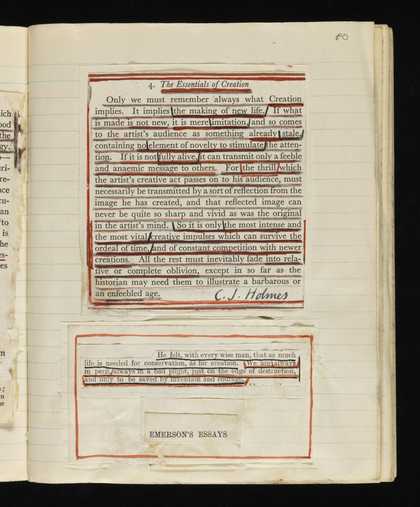 60
4. The Essentials of Creation
Only we must remember always what Creation
implies. It implies the making of new life. If what
is made is not new, it is mere imitation, and so comes
to the artist's audience as something already stale,
containing no element of novelty to stimulate the atten-
tion. If it is not fully alive, it can transmit only a feeble
and anaemic message to others. For the thrill which
the artist's creative act passes on to his audience, must
necessarily be transmitted by a sort of reflection from the
image he has created, and that reflected image can
never be quite so sharp and vivid as was the original
in the artist's mind. So it is only the most intense and
the most vital creative impulses which can survive the
ordeal of time, and of constant competition with newer
creations. All the rest must inevitably fade into rela-
tive or complete oblivion, except in so far as the
historian may need them to illustrate a barbarous or
an enfeebled age.
C. J. Holmes
He felt, with every wise man, that as much
life is needed for conservation, as for creation. We are always
in peril, always in a bad plight, just on the edge of destruction,
and only to be saved by invention and courage.
EMERSON'S ESSAYS
ich
ood
the
gy.
ri-
re-
ace
cu-
an
to
is
he
es